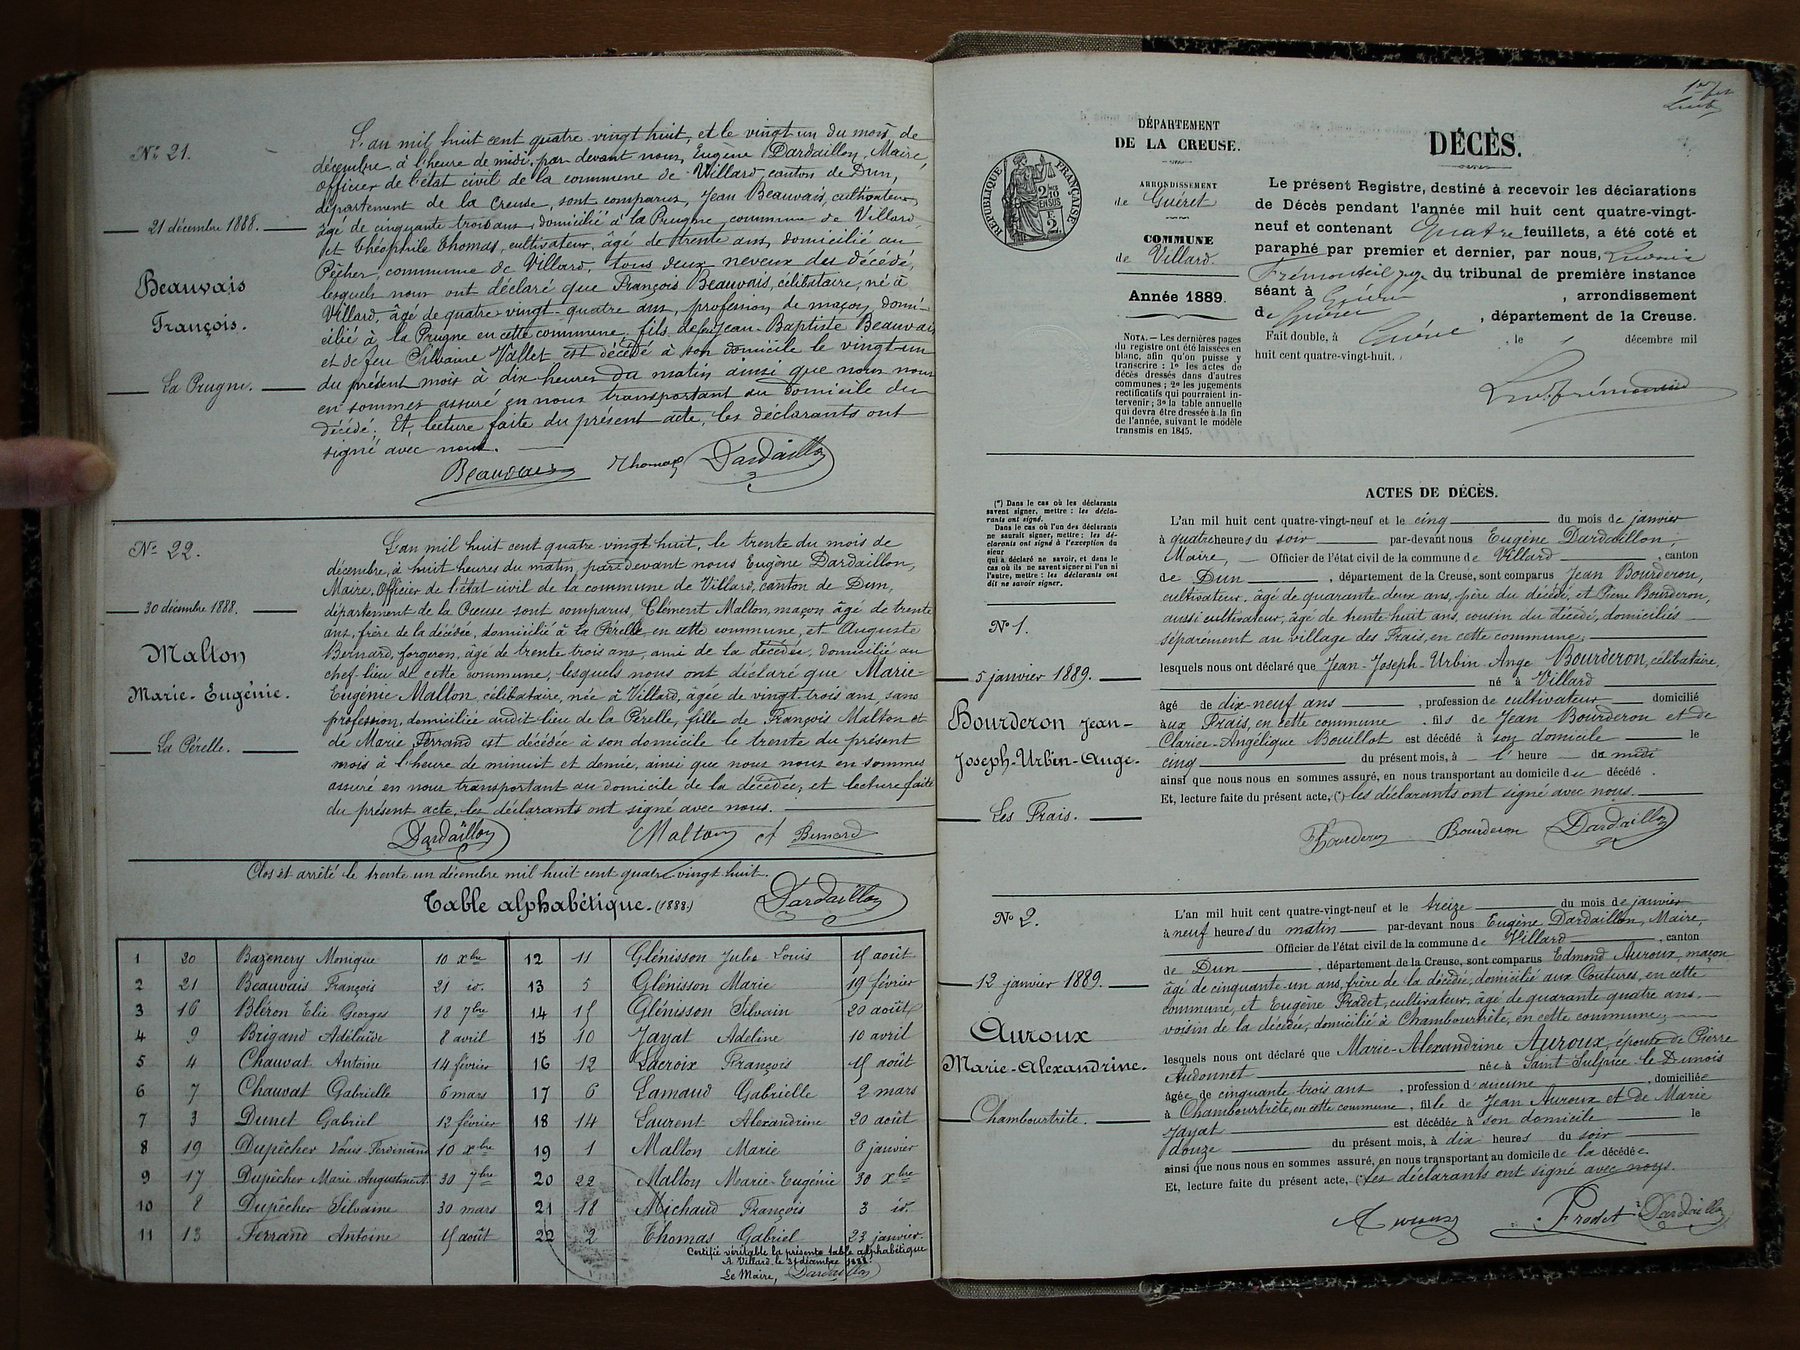 N° 21.
21 décembre 1888.
Beauvais
François.
La Prugne.
L'an mil huit cent quatre vingt huit, et le vingt-un du mois de
décembre à l'heure de midi, par devant nous, Eugène Dardaillon, Maire,
officier de l'état civil de la commune de Villard, canton de Dun,
département de la Creuse, sont comparus, Jean Beauvais, cultivateur,
âgé de cinquante trois ans, domicilié à la Prugne, commune de Villard
et Théophile Thomas, cultivateur, âgé de trente ans, domicilié au
Pêcher, commune de Villard, tous deux neveux du décédé,
lesquels nous ont déclaré que François Beauvais, célibataire, né à
Villard, âgé de quatre-vingt-quatre ans, profession de maçon, domi-
cilié à la Prugne en cette commune, fils de feu Jean-Baptiste Beauvais
et de feu Silvaine Vallet est décédé à son domicile le vingt-un
du présent mois à dix heures du matin ainsi que nous nous
en sommes assuré en nous transportant au domicile du
décédé; Et, lecture faite du présent acte, les déclarants ont
signé avec nous.
Beauvais Thomas Dardaillon
N° 22.
30 décembre 1888.
Malton
Marie-Eugénie.
La Pérelle.
L'an mil huit cent quatre-vingt huit, le trente du mois de
décembre, à huit heures du matin, par devant nous Eugène Dardaillon,
Maire, Officier de l'état civil de la commune de Villard, canton de Dun,
département de la Creuse sont comparus, Clément Malton, maçon âgé de trente
ans, frère de la décédée, domicilié à la Pérelle, en cette commune, et Auguste
Bernard, forgeron, âgé de trente trois ans, ami de la décédée, domicilié au
chef-lieu de cette commune; lesquels nous ont déclaré que Marie-
Eugénie Malton, célibataire, née à Villard, âgée de vingt-trois ans, sans
profession, domiciliée audit lieu de la Pérelle, fille de François Malton et
de Marie Ferrand est décédée à son domicile le trente du présent
mois à l'heure de minuit et demie, ainsi que nous nous en sommes
assuré en nous transportant au domicile de la décédée; et lecture faite
du présent acte, les déclarants ont signé avec nous.
Dardaillon Malton A Bernard
Clos et arrêté le trente un décembre mil huit cent quatre vingt huit.
Table alphabétique. (1888.) Dardaillon
1 20 Bazenery Monique 10 xbre
2 21 Beauvais François 21 id.
3 16 Bléron Elie Georges 18 7bre
4 9 Brigand Adélaïde 8 avril
5 4 Chauvat Antoine 14 février
6 7 Chauvat Gabrielle 6 mars
7 3 Dunet Gabriel 13 février
8 19 Dupêcher Louis Ferdinand 10 xbre
9 17 Dupêcher Marie Augustine 30 7bre
10 8 Dupêcher Silvaine 30 mars
11 13 Ferrand Antoine 15 août
12 11 Glénisson Jules-Louis 15 août
13 5 Glénisson Marie 19 février
14 15 Glénisson Silvain 20 août
15 10 Jayat Adeline 10 avril
16 12 Lacroix François 15 août
17 6 Lamaud Gabrielle 2 mars
18 14 Laurent Alexandrine 20 août
19 1 Malton Marie 6 janvier
20 22 Malton Marie-Eugénie 30 xbre
21 18 Michaud François 3 id.
22 2 Thomas Gabriel 23 janvier.
Certifié véritable la présente table alphabétique
A Villard le 31 décembre 1888.
Le Maire, Dardaillon
DÉPARTEMENT
DE LA CREUSE.
ARRONDISSEMENT
de Guéret
COMMUNE
de Villard.
Année 1889.
NOTA. — Les dernières pages
du registre ont été laissées en
blanc, afin qu'on puisse y
transcrire : 1° les actes de
décès dressés dans d'autres
communes ; 2° les jugements
rectificatifs qui pourraient in-
tervenir ; 3° la table annuelle
qui devra être dressée à la fin
de l'année, suivant le modèle
transmis en 1845.
RÉPUBLIQUE FRANÇAISE
DÉCÈS.
Le présent Registre, destiné à recevoir les déclarations
de Décès pendant l'année mil huit cent quatre-vingt-
neuf et contenant Quatre feuillets, a été coté et
paraphé par premier et dernier, par nous, Ludovic
Frémonteil juge du tribunal de première instance
séant à Guéret , arrondissement
de Guéret , département de la Creuse.
Fait double, à Guéret , le décembre mil
huit cent quatre-vingt-huit.
ACTES DE DÉCÈS.
(*) Dans le cas où les déclarants
savent signer, mettre : les décla-
rants ont signé.
Dans le cas où l'un des déclarants
ne saurait signer, mettre : les dé-
clarants ont signé à l'exception du
sieur
qui a déclaré ne savoir, et dans le
cas où ils ne savent signer ni l'un ni
l'autre, mettre : les déclarants ont
dit ne savoir signer.
N° 1.
5 janvier 1889.
Bourderon Jean-
Joseph-Urbin-Ange.
Les Frais.
L'an mil huit cent quatre-vingt-neuf et le cinq du mois de janvier
à quatre heures du soir par-devant nous Eugène Dardaillon,
Maire, Officier de l'état civil de la commune de Villard , canton
de Dun , département de la Creuse, sont comparus Jean Bourderon,
cultivateur, âgé de quarante deux ans, père du décédé, et Pierre Bourderon,
aussi cultivateur, âgé de trente huit ans, cousin du décédé, domiciliés
séparément au village des Frais, en cette commune;
lesquels nous ont déclaré que Jean-Joseph-Urbin Ange Bourderon, célibataire,
né à Villard
âgé de dix-neuf ans , profession de cultivateur domicilié
aux Frais, en cette commune . fils de Jean Bourderon et de
Clarice-Angélique Bouillot est décédé à son domicile le
cinq du présent mois, à l'heure de midi
ainsi que nous nous en sommes assuré, en nous transportant au domicile du décédé .
Et, lecture faite du présent acte, (*) les déclarants ont signé avec nous.
Bourderon Bourderon Dardaillon
N° 2.
12 janvier 1889.
Auroux
Marie-Alexandrine.
Chambourtrête.
L'an mil huit cent quatre-vingt-neuf et le treize du mois de janvier
à neuf heures du matin par-devant nous Eugène Dardaillon, Maire,
Officier de l'état civil de la commune de Villard , canton
de Dun , département de la Creuse, sont comparus Edmond Auroux, maçon
âgé de cinquante-un ans, frère de la décédée, domicilié aux Coutures, en cette
commune, et Eugène Pradet, cultivateur, âgé de quarante quatre ans,
voisin de la décédée, domicilié à Chambourtrête, en cette commune;
lesquels nous ont déclaré que Marie-Alexandrine Auroux, épouse de Pierre
Audonnet née à Saint Sulpice le Dunois
âgée de cinquante trois ans , profession d'aucune , domiciliée
à Chambourtrête, en cette commune , fille de Jean Auroux et de Marie
Jayat est décédée à son domicile le
douze du présent mois, à dix heures du soir
ainsi que nous nous en sommes assuré, en nous transportant au domicile de la décédée.
Et, lecture faite du présent acte, (*) les déclarants ont signé avec nous.
Auroux Pradet Dardaillon